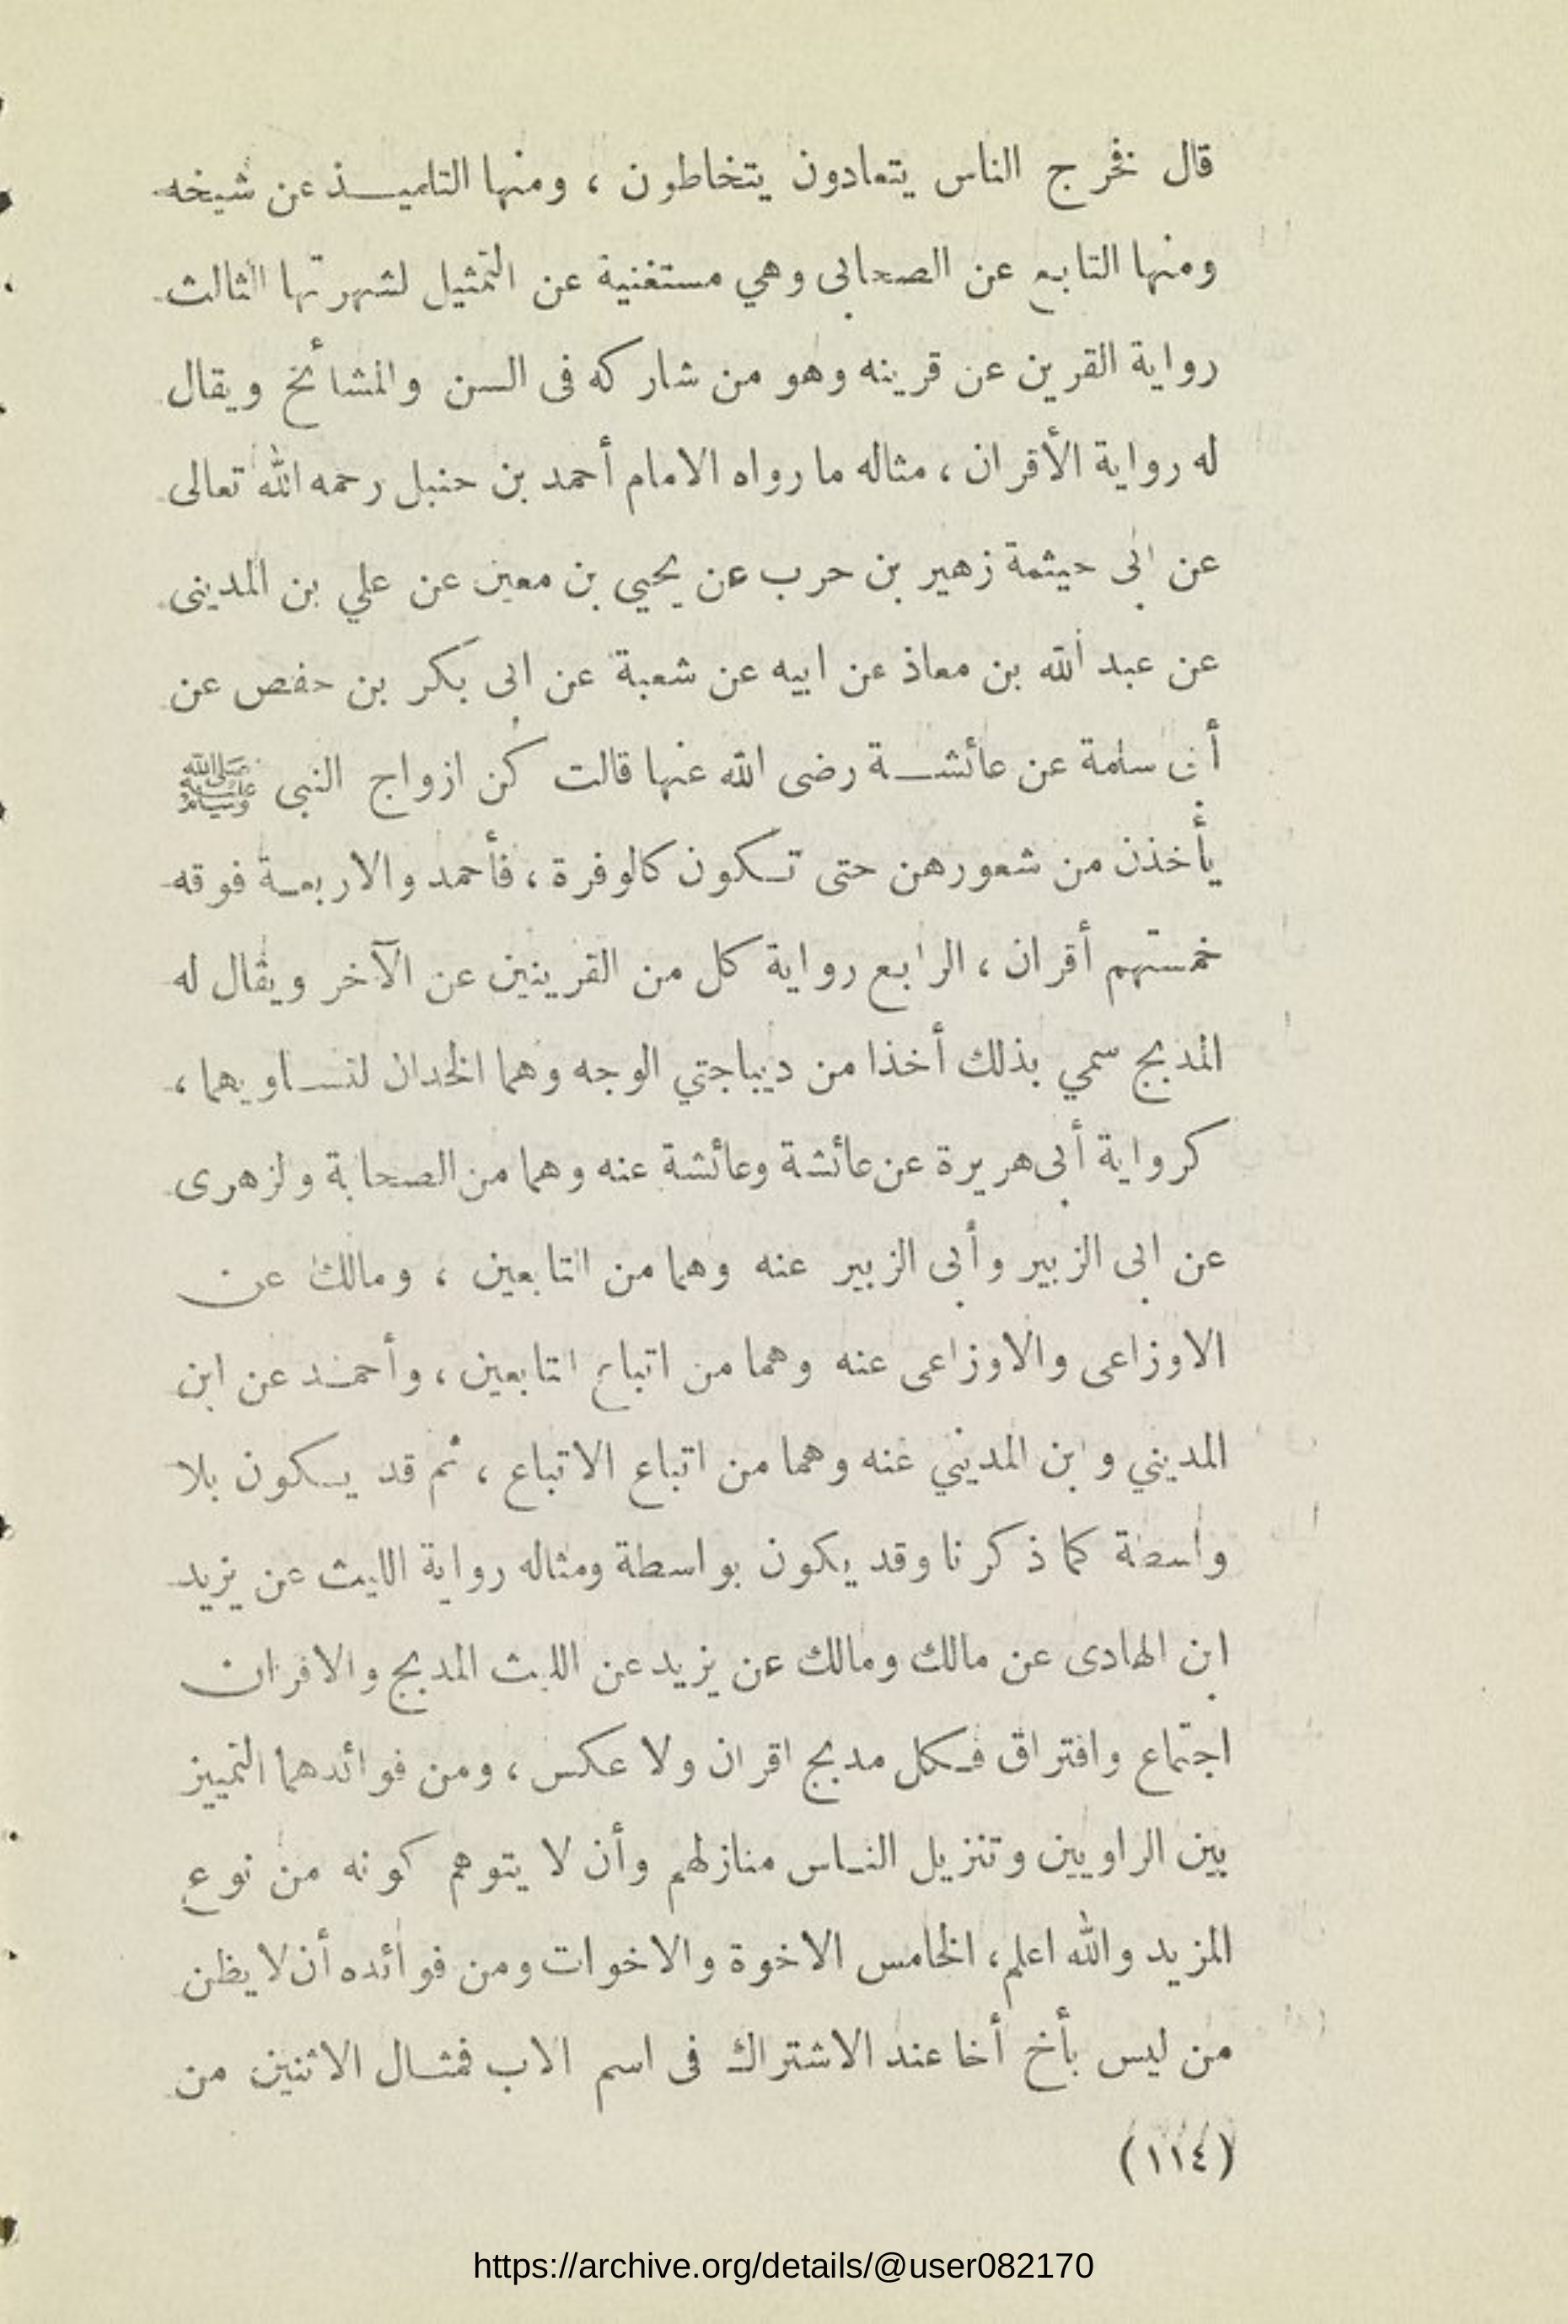 قال فخرج الناس يتعادون يتخاطون ، ومنها التلميذ عن شيخه
ومنها التابع عن الصحابى وهي مستغنية عن التمثيل لشهرتها الثالث
رواية القرين عن قرينه وهو من شاركه فى السن والمشائخ ويقال
له رواية الأقران ، مثاله ما رواه الامام أحمد بن حنبل رحمه الله تعالى
عن ابى حيثمة زهير بن حرب عن يحيى بن معين عن علي بن المدينى
عن عبد الله بن معاذ عن ابيه عن شعبة عن ابى بكر بن حفص عن
أبى سلمة عن عائشة رضى الله عنها قالت كن ازواج النبى ﷺ
يأخذن من شعورهن حتى تكون كالوفرة ، فأحمد والاربعة فوقه
خمستهم أقران ، الرابع رواية كل من القرينين عن الآخر ويقال له
المدبج سمي بذلك أخذا من ديباجتي الوجه وهما الخدان لتساويهما ،
كرواية أبى هريرة عن عائشة وعائشة عنه وهما من الصحابة ولزهرى
عن ابى الزبير وأبى الزبير عنه وهما من التابعين ، ومالك عن
الاوزاعى والاوزاعى عنه وهما من اتباع التابعين ، وأحمد عن ابن
المديني وابن المديني عنه وهما من اتباع الاتباع ، ثم قد يكون بلا
واسطة كما ذكرنا وقد يكون بواسطة ومثاله رواية الليث عن يزيد
ابن الهادى عن مالك ومالك عن يزيد عن الليث المدبج والاقران
اجتماع وافتراق فكل مدبج اقران ولا عكس ، ومن فوائدهما التمييز
بين الراويين وتنزيل الناس منازلهم وأن لا يتوهم كونه من نوع
المزيد والله اعلم ، الخامس الاخوة والاخوات ومن فوائده أن لا يظن
من ليس بأخ أخا عند الاشتراك فى اسم الاب فمثال الاثنين من
(١١٤)
https://archive.org/details/@user082170